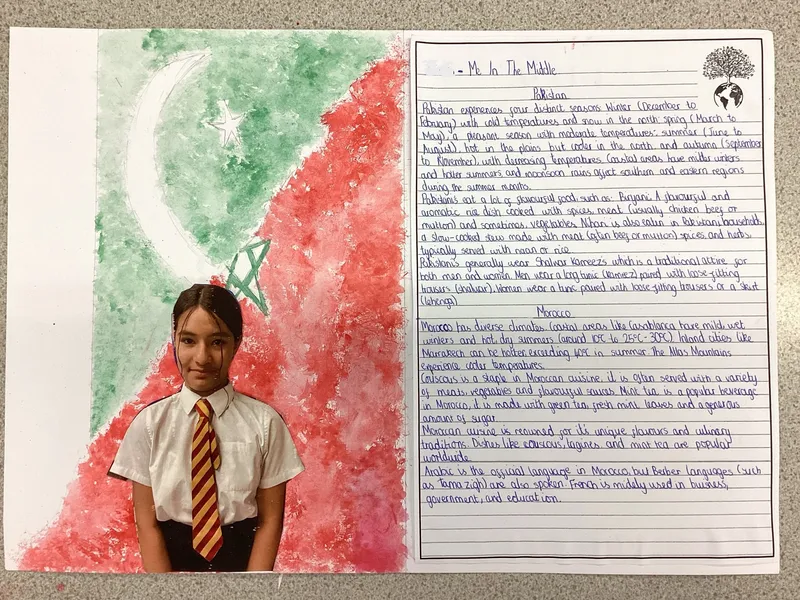 - Me In The Middle
Pakistan
Pakistan experiences four distinct seasons: Winter (December to
February) with cold temperatures and snow in the north; spring (March to
May), a pleasant season with moderate temperatures; summer (June to
August), hot in the plains but cooler in the north; and autumn (September
to November), with decreasing temperatures. Coastal areas have milder winters
and hotter summers, and monsoon rains affect southern and eastern regions
during the summer months.
Pakistanis eat a lot of flavourful food such as: Biryani: A flavourful and
aromatic rice dish cooked with spices, meat (usually chicken, beef or
mutton) and sometimes vegetables. Nihari is also eaten in Pakistani households,
a slow-cooked stew made with meat (often beef or mutton) spices, and herbs,
typically served with naan or rice.
Pakistanis generally wear Shalwar Kameezs which is a traditional attire for
both men and women. Men wear a long tunic (kameez) paired with loose-fitting
trousers (shalwar). Women wear a tunic paired with loose-fitting trousers or a skirt
(lehenga)
Morocco
Morocco has diverse climates. Coastal areas like Casablanca have mild, wet
winters and hot, dry summers (around 10°C to 25°C-30°C) Inland cities like
Marrakech can be hotter, exceeding 40°C in summer. The Atlas Mountains
experience colder temperatures.
Couscous is a staple in Moroccan cuisine, it is often served with a variety
of meats, vegetables and flavourful sauces. Mint tea is a popular beverage
in Morocco, it is made with green tea, fresh mint leaves and a generous
amount of sugar.
Moroccan cuisine is renowned for it's unique flavours and culinary
traditions. Dishes like couscous, tagines, and mint tea are popular
worldwide.
Arabic is the official language in Morocco, but Berber languages (such
as Tamazigh) are also spoken. French is widely used in business,
government, and education.